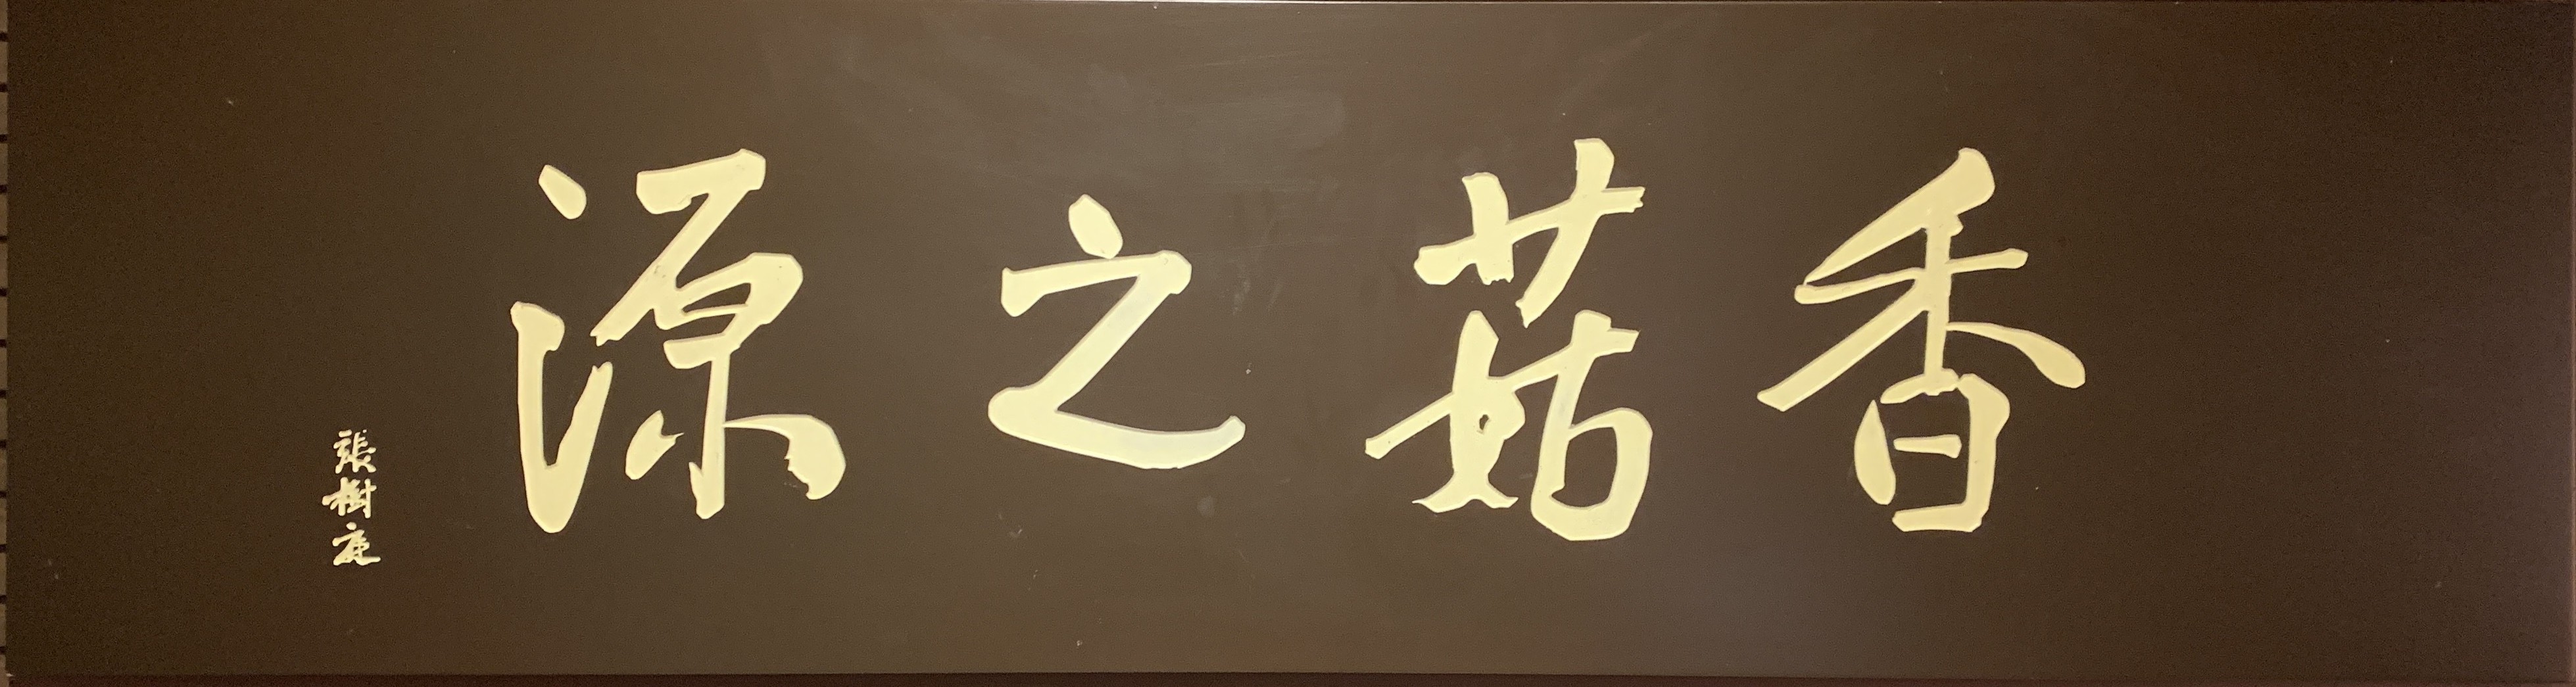 香菇之源
張樹庭